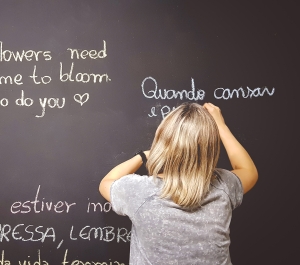 flowers need
me to bloom.
so do you ♡
Quando cansar
e
estiver
PRESSA, LEMBRE
da vida